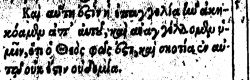 Καὶ αὕτη ὅζιν ἡ ἐπαγγελία ἣν ἀκη-
κόαμϟμ ἀπ' αὐτῦ, καὶ ἀναγγέλλομϟμ ὑ-
μῖν, ὅτι ὁ Θεὸς φῶς ὅζι, καὶ σκοτία ἐν αὐ-
τῷ οὐκ ἔστιν οὐδεμία.